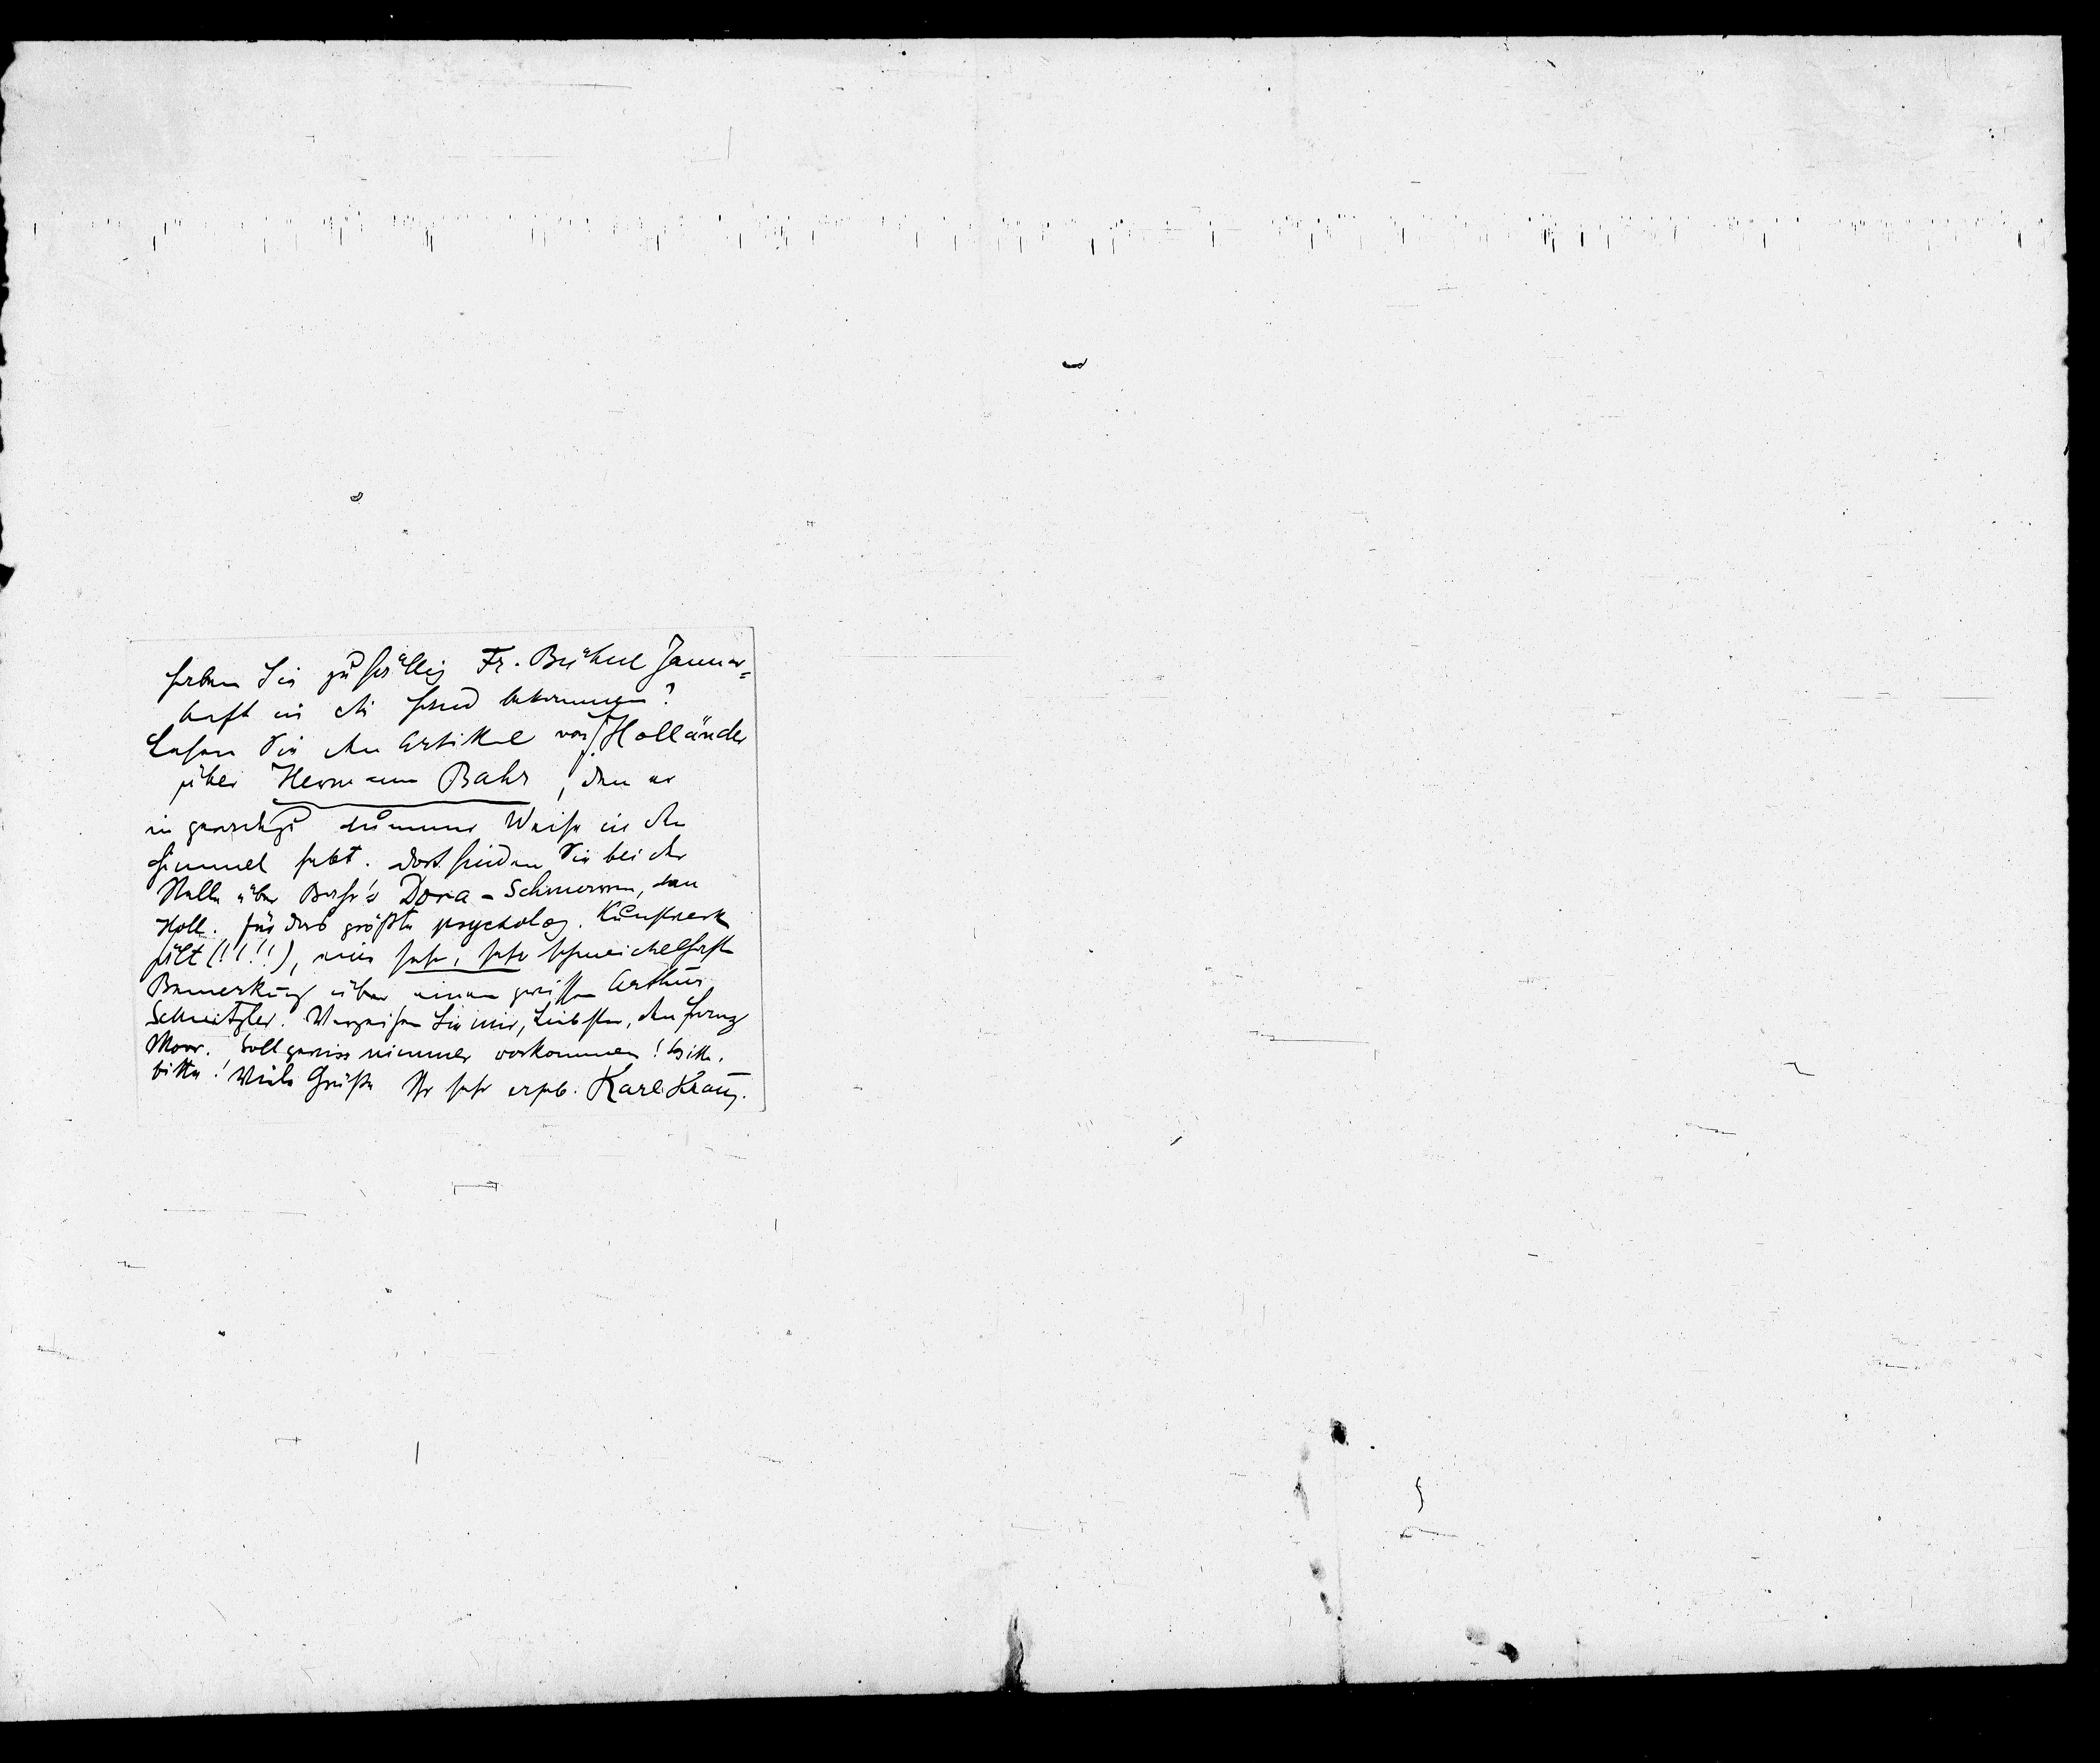 Haben Sie zufällig Fr. Bühne Januar-
heft in die Hand bekommen?
Lesen Sie den Artikel von F. Holländer
über Hermann Bahr, den er
in geradezu dummer Weise in den
Himmel hebt. Dort finden Sie bei der
Stelle über Bahr's Dora - Schmarrn, den
Holl. für das größte psycholog. Kunstwerk
hält (!!!!), eine sehr, sehr schmeichelhafte
Bemerkung über einen gewissen Arthur
Schnitzler. Verzeihen Sie mir, Liebster, den Franz
Moor. Soll gewiss nimmer vorkommen! Bitte,
bitte! Viele Grüße Ihr sehr ergeb. Karl Kraus.